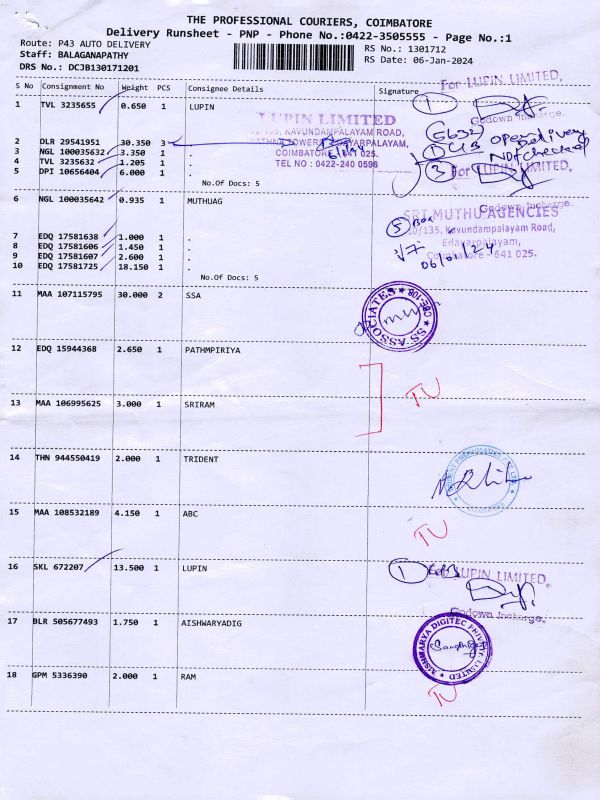 THE PROFESSIONAL COURIERS, COIMBATORE
Delivery Runsheet - PNP - Phone No.:0422-3505555 - Page No.:1
Route: P43 AUTO DELIVERY
RS No.: 1301712
Staff: BALAGANAPATHY
RS Date: 06-Jan-2024
DRS No.: DCJB130171201
S No Consignment No Weight PCS Consignee Details Signature
For LUPIN LIMITED,
1 TVL 3235655 0.650 1 LUPIN
1
Godown Incharge.
LUPIN LIMITED
KAVUNDAMPALAYAM ROAD,
COIMBATORE - 641 025.
TEL NO : 0422-240 0596
2 DLR 29541951 30.350 3 .
3 NGL 100035632 3.350 1 .
4 TVL 3235632 1.205 1 .
5 DPI 10656404 6.000 1 .
No.Of Docs: 5
open Delivery
Not checked
3
For LUPIN LIMITED,
Godown Incharge.
6 NGL 100035642 0.935 1 MUTHUAG
SRI MUTHU AGENCIES
10/135, Kavundampalayam Road,
Edayarpalayam,
Coimbatore - 641 025.
5 Box
06/01/24
7 EDQ 17581638 1.000 1 .
8 EDQ 17581606 1.450 1 .
9 EDQ 17581607 2.600 1 .
10 EDQ 17581725 18.150 1 .
No.Of Docs: 5
11 MAA 107115795 30.000 2 SSA
SS ASSOCIATES
12 EDQ 15944368 2.650 1 PATHMPIRIYA
TU
13 MAA 106995625 3.000 1 SRIRAM
14 THN 944550419 2.000 1 TRIDENT
15 MAA 108532189 4.150 1 ABC
TU
16 SKL 672207 13.500 1 LUPIN
1
LUPIN LIMITED,
Godown Incharge.
17 BLR 505677493 1.750 1 AISHWARYADIG
AISHWARYA DIGITEC PRIVATE LIMITED
18 GPM 5336390 2.000 1 RAM
TU